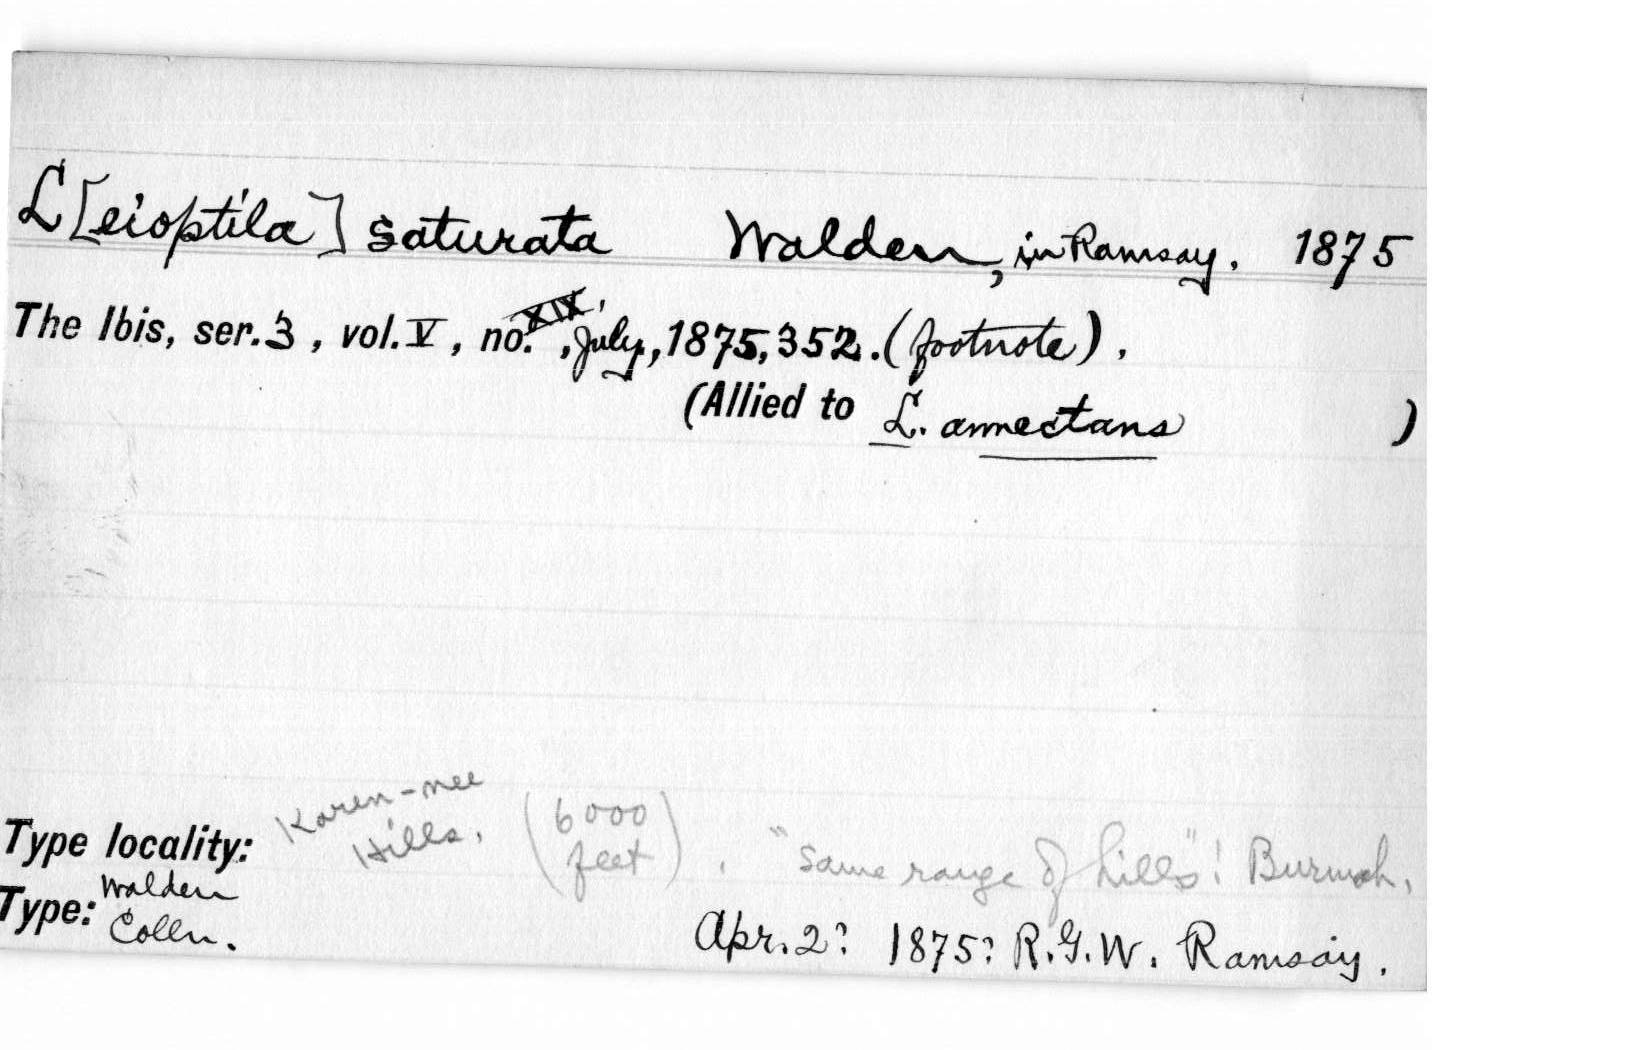 L[eioptila] saturata Walden, in Ramsay. 1875
The Ibis, ser. 3, vol. V, no. XIX, July, 1875, 352. (footnote).
(Allied to L. annectans )
Type locality: Karen-nee Hills, (6000 feet), "same range of hills"! Burmah,
Type: Walden Colln. Apr. 2? 1875? R.G.W. Ramsay.